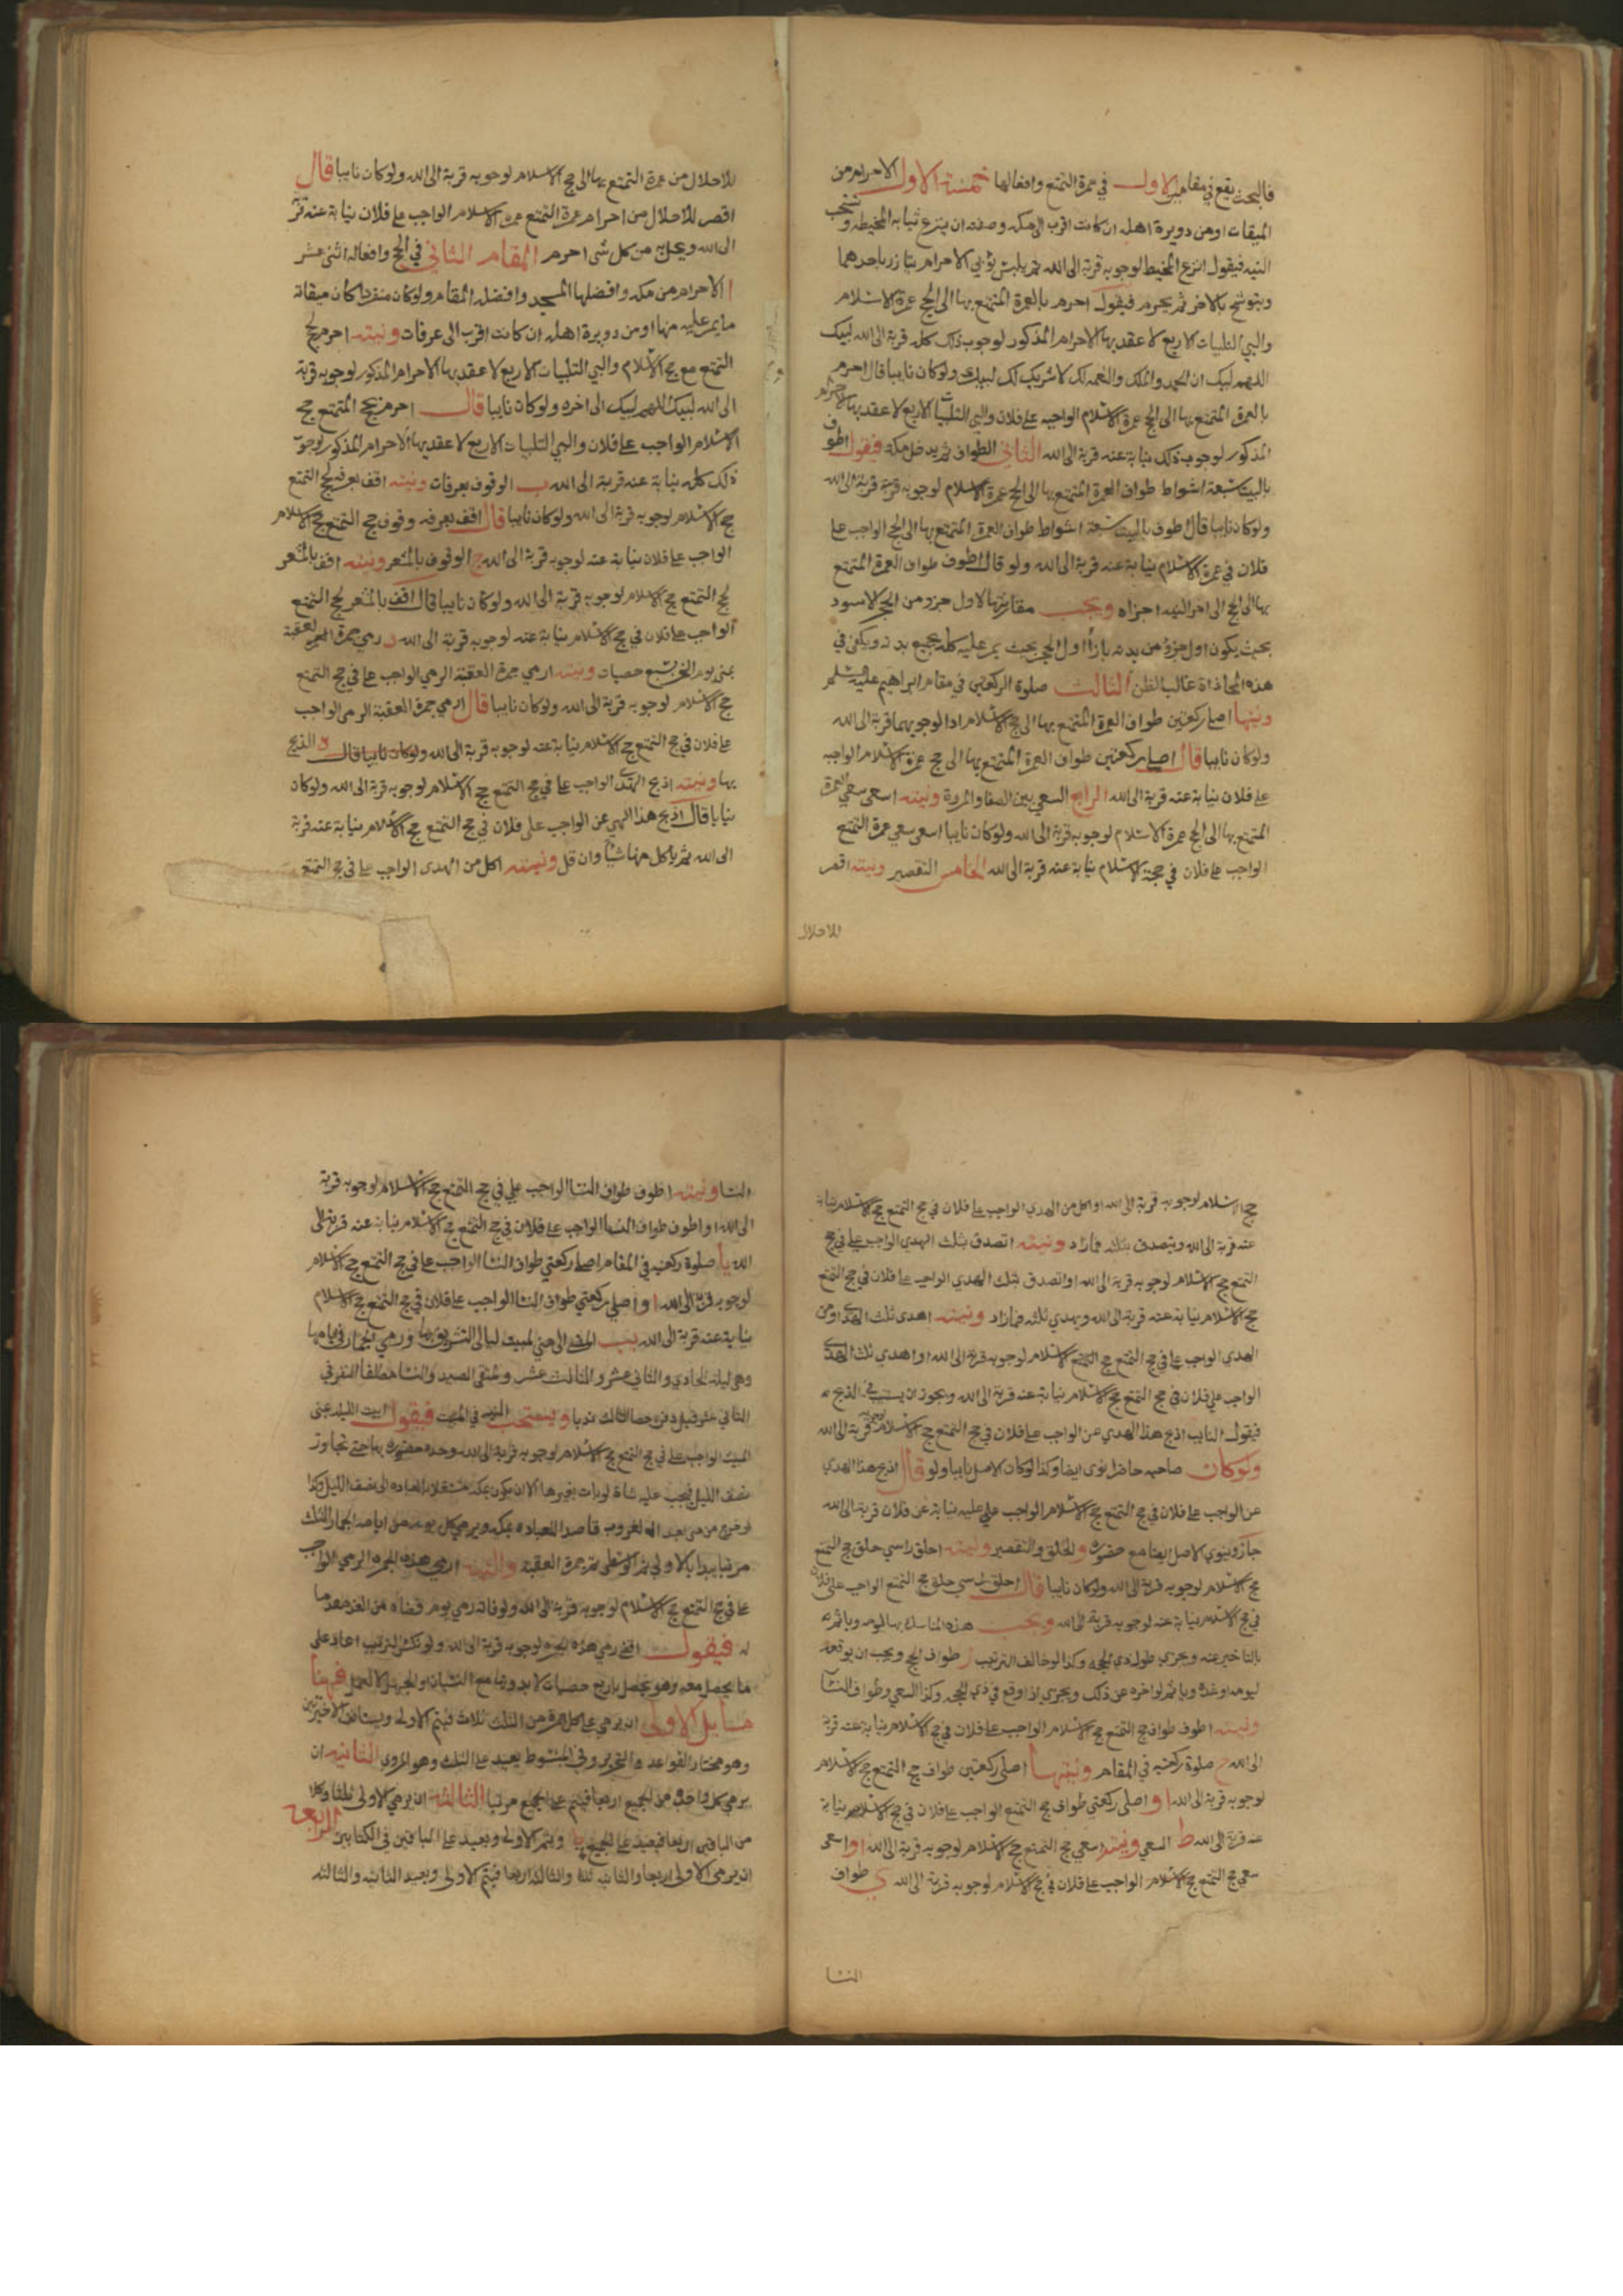 فالبحث يقع في مقامين الاول في عمرة التمتع وافعالها خمسة الاول الاحرام من
الميقات او من دويرة اهله ان كانت اقرب الى مكه وصفته ان ينزع ثيابه المخيطه و
النيه فيقول انزع المخيط لوجوبه قربة الى الله ثم يلبس ثوبي الاحرام يتازر باحدهما
ويتوشح بالاخر ثم يحرم فيقول احرم بالعمرة المتمتع بها الى الحج عمرة الاسلام
والبي التلبيات الاربع لاعقد بها الاحرام المذكور لوجوب ذلك كله قربة الى الله لبيك
اللهم لبيك ان الحمد والملك والنعمه لك لا شريك لك لبيك ولو كان نايبا قال احرم
بالعمرة المتمتع بها الى الحج عمرة الاسلام الواجبه على فلان والبي التلبيات الاربع لاعقد بها الاحرام
المذكور لوجوب ذلك نيابة عنه قربة الى الله الثاني الطواف ثم يدخل مكه فيقول اطوف
بالبيت سبعة اشواط طواف العمرة المتمتع بها الى الحج عمرة الاسلام لوجوبه قربة الى الله
ولو كان نايبا قال اطوف بالبيت سبعة اشواط طواف العمرة المتمتع بها الى الحج الواجب على
فلان في عمرة الاسلام نيابة عنه قربة الى الله ولو قال اطوف طواف العمرة المتمتع
بها الى الحج الى اخر النيه اجزاه ويجب مقارنتها لاول جزء من الحجر الاسود
بحيث يكون اول جزء من بدنه بازاء اول الحجر بحيث يمر عليه كله بجميع بدنه ويكفي في
هذه المحاذاة غالب الظن الثالث صلوة الركعتين في مقام ابراهيم عليه السلم
ونيتها اصلي ركعتين طواف العمرة المتمتع بها الى حج الاسلام ادا لوجوبهما قربة الى الله
ولو كان نايبا قال اصلي ركعتين طواف العمرة المتمتع بها الى حج عمرة الاسلام الواجبه
على فلان نيابة عنه قربة الى الله الرابع السعي بين الصفا والمروة ونيته اسعى سعي العمرة
المتمتع بها الى الحج عمرة الاسلام لوجوبه قربة الى الله ولو كان نايبا اسعى سعي عمرة التمتع
الواجب على فلان في حجة الاسلام نيابة عنه قربة الى الله الخامس التقصير ونيته اقصر
للاحلال
للاحلال من عمرة التمتع بها الى حج الاسلام لوجوبه قربة الى الله ولو كان نايبا قال
اقصر للاحلال من احرام عمرة التمتع عمرة الاسلام الواجب على فلان نيابة عنه قربة
الى الله ويحل به من كل شى احرم المقام الثاني في الحج وافعاله اثنى عشر
ا الاحرام من مكه وافضلها المسجد وافضله المقام ولو كان منفردا كان ميقاته
ما يمر عليه منها او من دويرة اهله ان كانت اقرب الى عرفات ونيته احرم لحج
التمتع مع حج الاسلام والبي التلبيات الاربع لاعقد بها الاحرام المذكور لوجوبه قربة
الى الله لبيك اللهم لبيك الى اخره ولو كان نايبا قال احرم بحج المتمتع حج
الاسلام الواجب على فلان والبي التلبيات الاربع لاعقد بها الاحرام المذكور لوجوب
ذلك كله نيابة عنه قربة الى الله ب الوقوف بعرفات ونيته اقف بعرفه لحج التمتع
حج الاسلام لوجوبه قربة الى الله ولو كان نايبا قال اقف بعرفه وقوف حج التمتع حج الاسلام
الواجب على فلان نيابة عنه لوجوبه قربة الى الله ج الوقوف بالمشعر ونيته اقف بالمشعر
لحج التمتع حج الاسلام لوجوبه قربة الى الله ولو كان نايبا قال اقف بالمشعر لحج التمتع
الواجب على فلان في حج الاسلام نيابة عنه لوجوبه قربة الى الله د رمي جمرة العقبة
بمنى يوم النحر بسبع حصيات ونيته ارمي جمرة العقبة الرمي الواجب على في حج التمتع
حج الاسلام لوجوبه قربة الى الله ولو كان نايبا قال ارمي جمرة العقبة الرمي الواجب
على فلان في حج التمتع حج الاسلام نيابة عنه لوجوبه قربة الى الله ولو كان نايبا قال ه الذبح
بها ونيته اذبح الهدي الواجب على في حج التمتع حج الاسلام لوجوبه قربة الى الله ولو كان
نيابا قال اذبح هذا الهدي عن الواجب على فلان في حج التمتع حج الاسلام نيابة عنه قربة
الى الله ثم ياكل منها شيا وان قل ونيته اكل من الهدى الواجب على في حج التمتع
حج الاسلام لوجوبه قربة الى الله او اكل من الهدي الواجب على فلان في حج التمتع حج الاسلام نيابة
عنه قربة الى الله ويتصدق بثلثه فمازاد ونيته اتصدق بثلث الهدي الواجب على في حج
التمتع حج الاسلام لوجوبه قربة الى الله او اتصدق بثلث الهدي الواجب على فلان في حج التمتع
حج الاسلام نيابة عنه قربة الى الله ويهدي ثلثه فمازاد ونيته اهدى ثلث الهدي او من
الهدي الواجب على في حج التمتع حج الاسلام لوجوبه قربة الى الله او اهدي ثلث الهدي
الواجب على فلان في حج التمتع حج الاسلام نيابة عنه قربة الى الله ويجوز ان يستنيب في الذبح
فيقول النايب اذبح هذا الهدي عن الواجب على فلان في حج التمتع حج الاسلام لوجوبه قربة الى الله
ولو كان صاحبه حاضرا نوى ايضا وكذا لو كان الاصل نايبا ولو قال اذبح هذا الهدي
عن الواجب على فلان في حج التمتع حج الاسلام الواجب علي عليه نيابة عن فلان قربة الى الله
جاز وينوي الاصل ايضا مع حضوره و الحلق والتقصير ونيته احلق راسي حلق حج التمتع
حج الاسلام لوجوبه قربة الى الله ولو كان نايبا قال احلق راسي حلق حج التمتع الواجب على فلان
في حج الاسلام نيابة عنه لوجوبه قربة الى الله ويجب هذه المناسك بها ليومه وياثم
بالتاخير عنه ويجزي طول ذي الحجه وكذا لو خالف الترتيب ز طواف الحج ويجب ان يوقعه
ليومه او غده وياثم لو اخره عن ذلك ويجزي اذا وقع في ذي الحجه وكذا السعي وطواف النسا
ونيته اطوف طواف حج التمتع حج الاسلام الواجب على فلان في حج الاسلام نيابة عنه قربة
الى الله ح صلوة ركعتيه في المقام ونيتها اصلي ركعتين طواف حج التمتع حج الاسلام
لوجوبه قربة الى الله او اصلي ركعتي طواف حج التمتع الواجب على فلان في حج الاسلام نيابة
عنه قربة الى الله ط السعي ونيته اسعي حج التمتع حج الاسلام لوجوبه قربة الى الله او اسعى
سعي حج التمتع حج الاسلام الواجب على فلان في حج الاسلام لوجوبه قربة الى الله ي طواف
النسا
النسا ونيته اطوف طواف النسا الواجب علي في حج التمتع حج الاسلام لوجوبه قربة
الى الله او اطوف طواف النسا الواجب على فلان في حج التمتع حج الاسلام نيابة عنه قربة الى
الله يا صلوة ركعتيه في المقام اصلي ركعتي طواف النسا الواجب على في حج التمتع حج الاسلام
لوجوبه قربة الى الله او اصلي ركعتي طواف النسا الواجب على فلان في حج التمتع حج الاسلام
نيابة عنه قربة الى الله يب المضي الى منى لمبيت ليالى التشريق بها ورمي الجمار في ايامها
وهي ليلة الحادي والثاني عشر والثالث عشر ومتقى الصيد والنسا مطلقا النفر في
الثاني عشر قبل دفن حصا الثالث ندبا ويستحب النيه في المبيت فيقول ابيت الليلة بمنى
المبيت الواجب على في حج التمتع حج الاسلام لوجوبه قربة الى الله وحده حضوره بها حتى تجاوز
نصف الليل فيجب عليه شاة لو بات بغيرها الا ان يكون بمكه مشتغلا بالعباده الى نصف الليل وكذا
لو خرج من منى بعد الغروب قاصدا للعباده بمكه ويرمي كل يوم من ايامه الجمار الثلث
مرتبا يبدا بالاولى ثم الوسطى ثم جمرة العقبة والنيه ارمي هذه الجمره الرمي الواجب
على في حج التمتع حج الاسلام لوجوبه قربة الى الله ولو فاته رمي يوم قضاه من الغد مقدما
له فيقول اقضي رمي هذه الجمره لوجوبه قربة الى الله ولو نكس الترتيب اعاد على
ما يحصل معه وهو يحصل باربع حصيات لا بدونها مع النسيان او الجهل لا العمد فهنا
مسايل الاولى ان يرمي على كل جمرة من الثلث ثلاث فيتم الاولى ويستانف الاخيرتين
وهو مختار القواعد والتحرير وفي المبسوط يعيد على الثلث وهو المروي الثانيه ان
يرمي كل واحدة من الجميع اربعا فيتم على الجميع مرتبا الثالثه ان يرمي الاولى ثلثا وكلا
من الباقيين اربعا فيعيد على الجميع ويتم الاولى ويعيد على الباقين في الكتابين الرابعة
ان يرمى الاولى اربعا والثانيه ثلثا والثالثه اربعا فيتم الاولى ويعيد الثانيه والثالثه